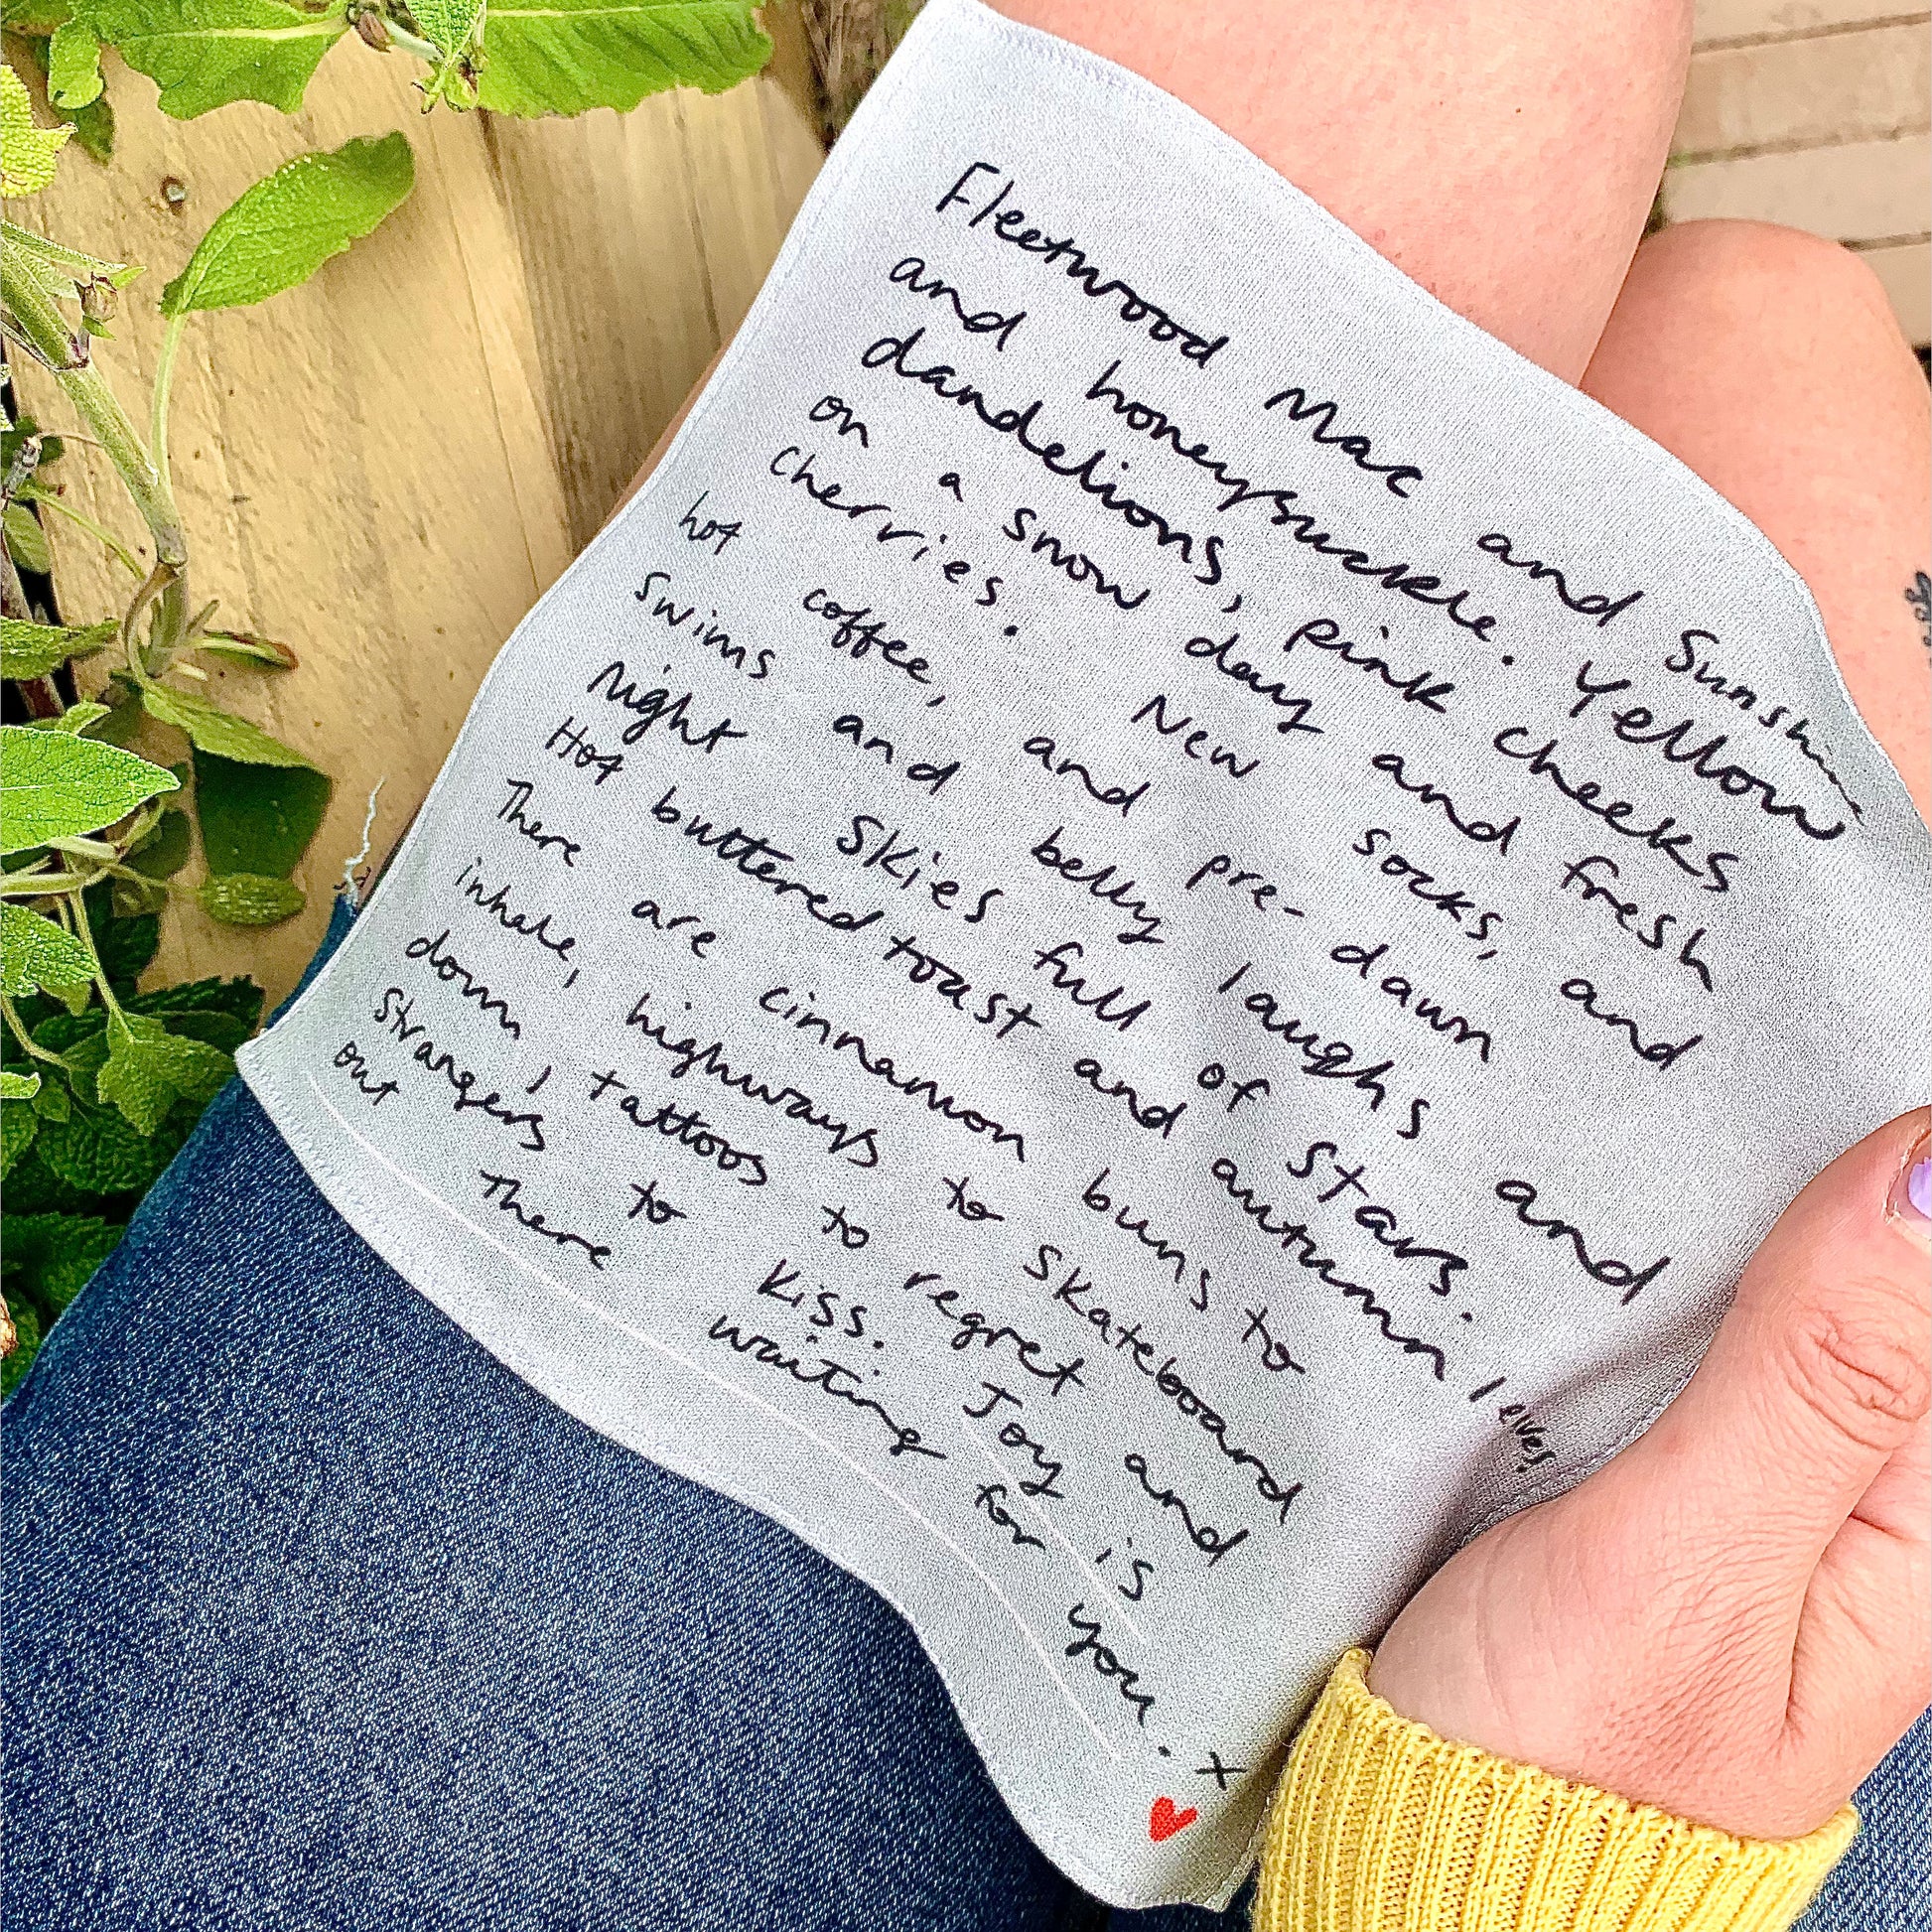 Fleetwood Mac and Sunshine
and honeysuckle. Yellow
dandelions, pink cheeks
on a snow day and fresh
cherries. New socks, and
hot coffee, and pre-dawn
swims and belly laughs and
Night skies full of stars.
Hot buttered toast and autumn leaves,
There are cinnamon buns to
inhale, highways to skateboard
down, tattoos to regret and
strangers to kiss. Joy is
out there waiting for you. x